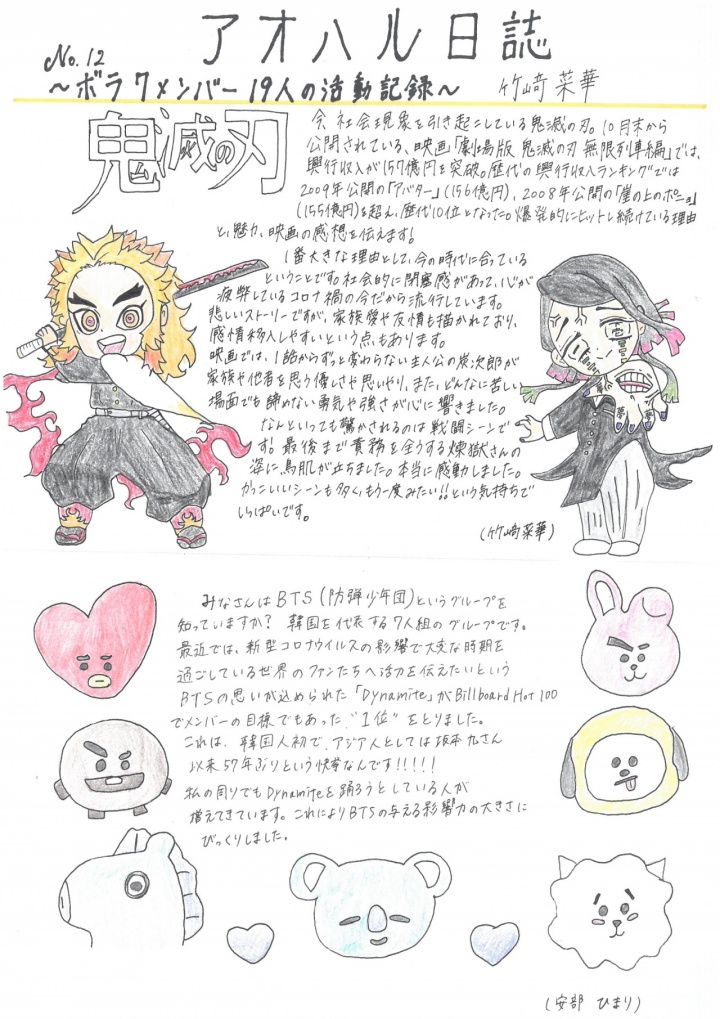 アオハル日誌
No.12
〜ボラ7メンバー19人の活動記録〜 竹﨑 菜華
鬼滅の刃
今、社会現象を引き起こしている鬼滅の刃。10月末から
公開されている、映画「劇場版 鬼滅の刃 無限列車編」では、
興行収入が157億円を突破。歴代の興行収入ランキングでは
2009年公開の「アバター」(156億円)、2008年公開の「崖の上のポニョ」
(155億円)を超え、歴代10位となった。爆発的にヒットし続けている理由
と、魅力、映画の感想を伝えます!
1番大きな理由として、今の時代に合っている
ということです。社会的に閉塞感があって、心が
疲弊しているコロナ禍の今だから流行しています。
悲しいストーリーですが、家族愛や友情も描かれており、
感情移入しやすいという点もあります。
映画では、1話からずっと変わらない主人公の炭次郎が
家族や他者を思う優しさや思いやり、また、どんなに苦しい
場面でも諦めない勇気や強さが心に響きました。
なんといっても驚かされるのは戦闘シーンで
す!最後まで責務を全うする煉獄さんの
姿に、鳥肌が立ちました。本当に感動しました。
かっこいいシーンも多く、もう一度みたい!!という気持ちで
いっぱいです。
(竹﨑菜華)
みなさんはBTS(防弾少年団)というグループを
知っていますか? 韓国を代表する7人組のグループです。
最近では、新型コロナウイルスの影響で大変な時期を
過ごしている世界のファンたちへ活力を伝えたいという
BTSの思いが込められた「Dynamite」がBillboard Hot 100
でメンバーの目標でもあった"1位"をとりました。
これは、韓国人初で、アジア人としては坂本九さん
以来57年ぶりという快挙なんです!!!!!
私の周りでもDynamiteを踊ろうとしている人が
増えてきています。これによりBTSの与える影響力の大きさに
びっくりしました。
(安部 ひまり)